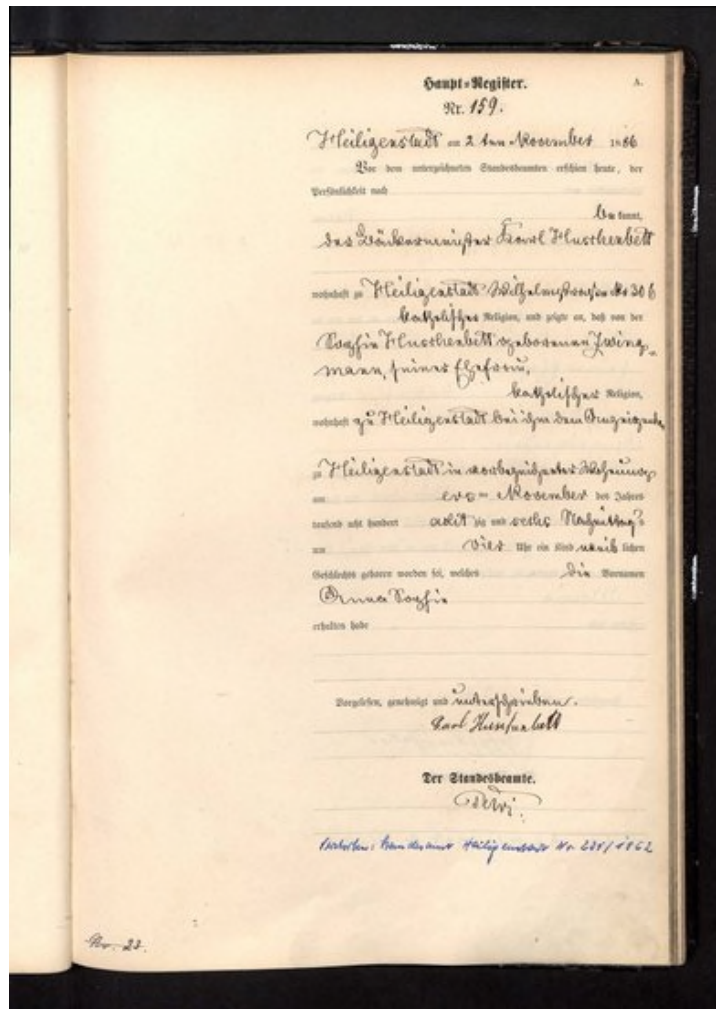 Haupt-Register.
A.
Nr. 159.
Heiligenstadt am 2 ten November 1886
Vor dem unterzeichneten Standesbeamten erschien heute, der
Persönlichkeit nach
be kannt,
der Bäckermeister Karl Huschenbett
wohnhaft zu Heiligenstadt Wilhelmstraße No 306
katholischer Religion, und zeigte an, daß von der
Sophie Huschenbett geborenen Zwing-
mann, seiner Ehefrau,
katholischer Religion,
wohnhaft zu Heiligenstadt bei ihm dem Anzeigende
zu Heiligenstadt in vorbezeichneter Wohnung
am November des Jahres
tausend acht hundert acht zig und sechs Nachmittags
um vier Uhr ein Kind weib lichen
Geschlechts geboren worden sei, welches die Vornamen
Anna Sophie
erhalten habe
Vorgelesen, genehmigt und unterschrieben.
Karl Huschenbett
Der Standesbeamte.
Standesamt Heiligenstadt Nr. /1962
No. 23.